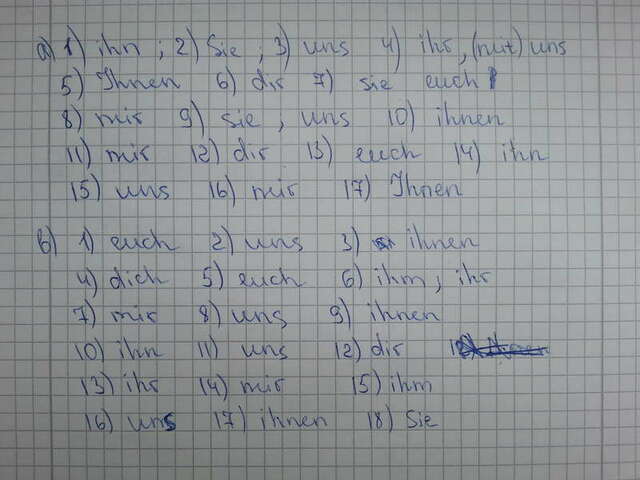 a) 1) ihn ; 2) Sie ; 3) uns 4) ihr, (mit) uns
5) Ihnen 6) dir 7) sie euch
8) mir 9) sie, uns 10) ihnen
11) mir 12) dir 13) euch 14) ihn
15) uns 16) mir 17) Ihnen
b) 1) euch 2) uns 3) ihnen
4) dich 5) euch 6) ihm, ihr
7) mir 8) uns 9) ihnen
10) ihn 11) uns 12) dir
13) ihr 14) mir 15) ihm
16) uns 17) ihnen 18) Sie